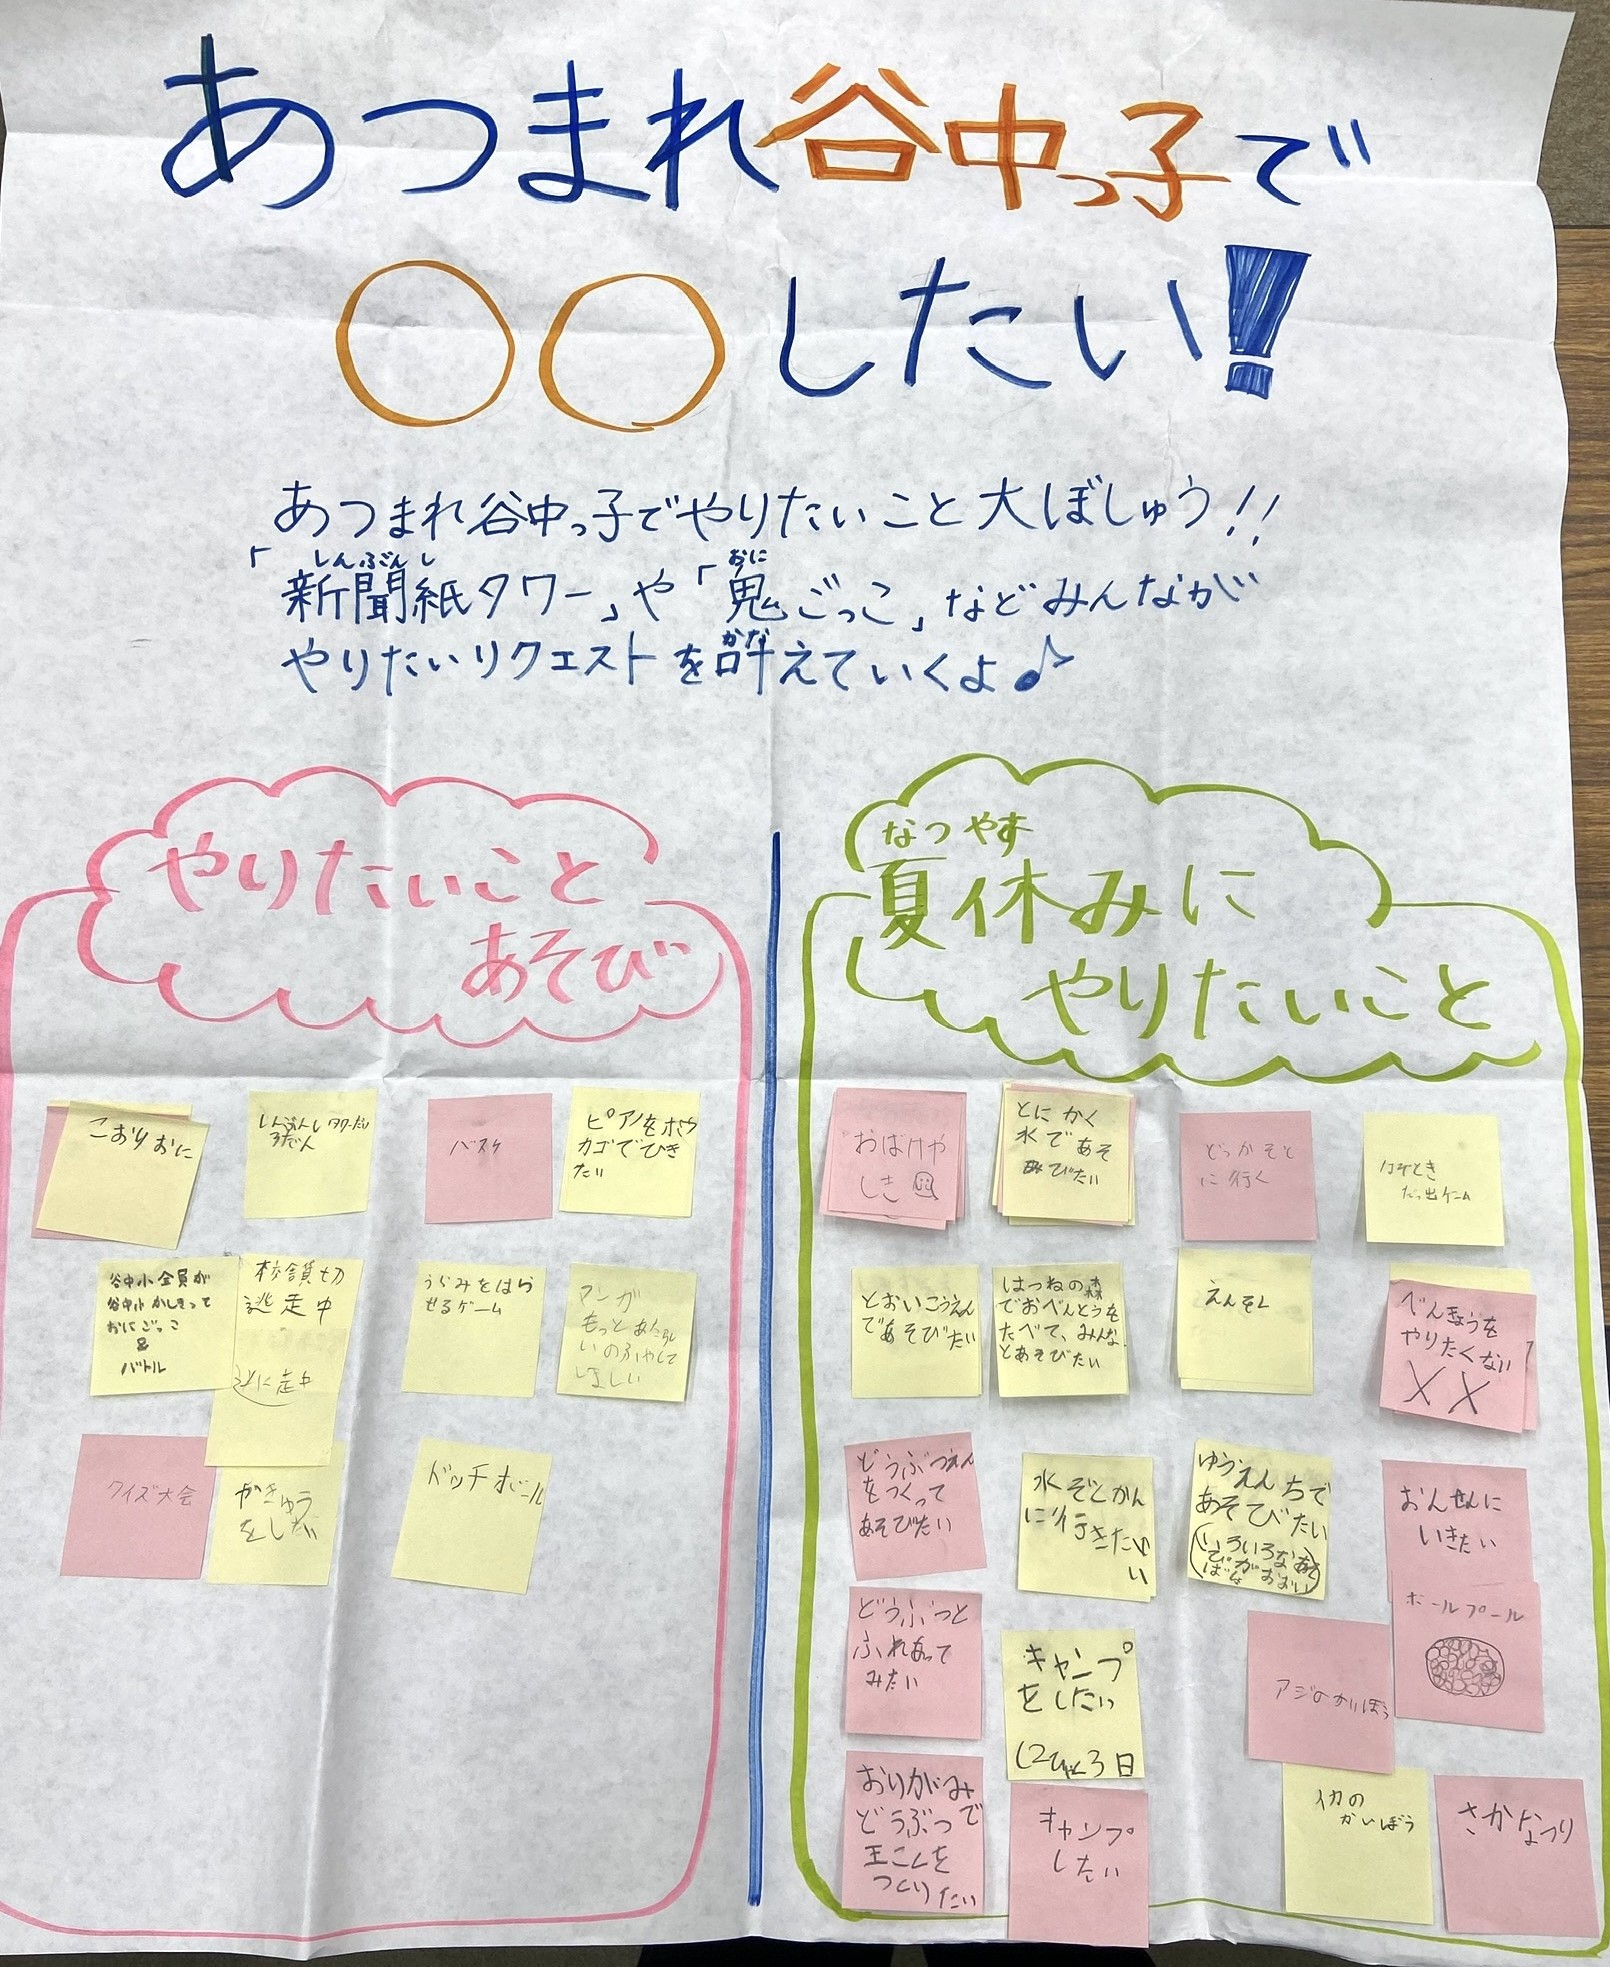 あつまれ谷中っ子で
〇〇したい!
あつまれ谷中っ子でやりたいこと大ぼしゅう!!
しんぶんし おに
「新聞紙タワー」や「鬼ごっこ」などみんなが
かな
やりたいリクエストを叶えていくよ♪
やりたいこと
あそび
こおりおに
しんぶんしタワーだい
バスケ
ピアノをホウ
カゴでひき
たい
谷中小全員が
谷中小かしきって
おにごっこ
&
バトル
校舎貸切
逃走中
うらみをはら
せるゲーム
マンガ
もっとあたらし
いのふやして
ほしい
クイズ大会
やきゅう
をしたい
ドッチボール
なつやす
夏休みに
やりたいこと
おばけや
しき
とにかく
水であそ
びたい
どっかそと
に行く
なぞとき
だっ出ゲーム
とおいこうえん
であそびたい
はつねの森
でおべんとうを
たべて、みんな
とあそびたい
えんそく
べんきょうを
やりたくない
XX
どうぶつえん
をつくって
あそびたい
水ぞくかん
に行きたい
い
ゆうえんちで
あそびたい
おんせんに
いきたい
どうぶつと
ふれあって
みたい
キャンプ
をしたい
(2はく3日
アジのかいぼう
ボールプール
おりがみ
どうぶつで
王こくを
つくりたい
キャンプ
したい
イカの
かいぼう
さかな
つり